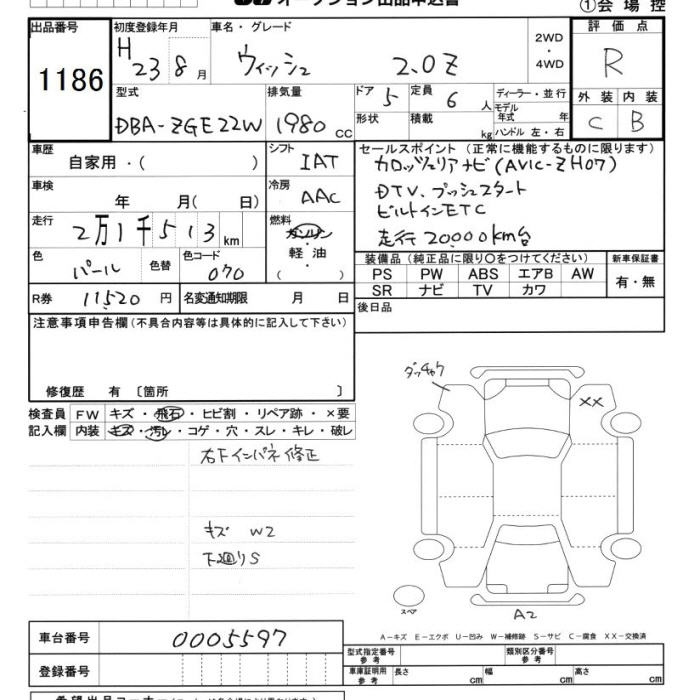 オークション出品申込書
①会場控
出品番号 初度登録年月 車名・グレード 2WD・4WD 評価点
1186 H 23 8月 ウィッシュ 2.0Z R
型式 排気量 ドア 5 定員 6人 ディーラー・並行 外装 内装
DBA-ZGE22W 1980cc 形状 積載 kg モデル年式 年 ハンドル 左・右 C B
車歴 自家用・( ) シフト IAT セールスポイント (正常に機能するものに限ります)
カロッツェリアナビ(AVIC-ZH07)
車検 年 月( 日) 冷房 AAC DTV、プッシュスタート
ビルトインETC
走行 2万1千513km 燃料 ガソリン・軽油・( ) 走行20000km台
色 パール 色替 色コード 070 装備品 (純正品に限り〇をつけてください) 新車保証書
PS PW ABS エアB AW 有・無
SR ナビ TV カワ
R券 11520円 名変通知期限 月 日 後日品
注意事項申告欄(不具合内容等は具体的に記入して下さい)
修復歴 有 〔箇所 〕
検査員 FW キズ・飛石・ヒビ割・リペア跡・×要
記入欄 内装 キズ・汚レ・コゲ・穴・スレ・キレ・破レ
右下インパネ修正
キズ W2
下廻りS
XX
スペア
A2
A-キズ E-エクボ U-凹み W-補修跡 S-サビ C-腐食 XX-交換済
車台番号 0005597
型式指定番号 参考 類別区分番号 参考
登録番号 車庫証明用 参考 長さ cm 幅 cm 高さ cm